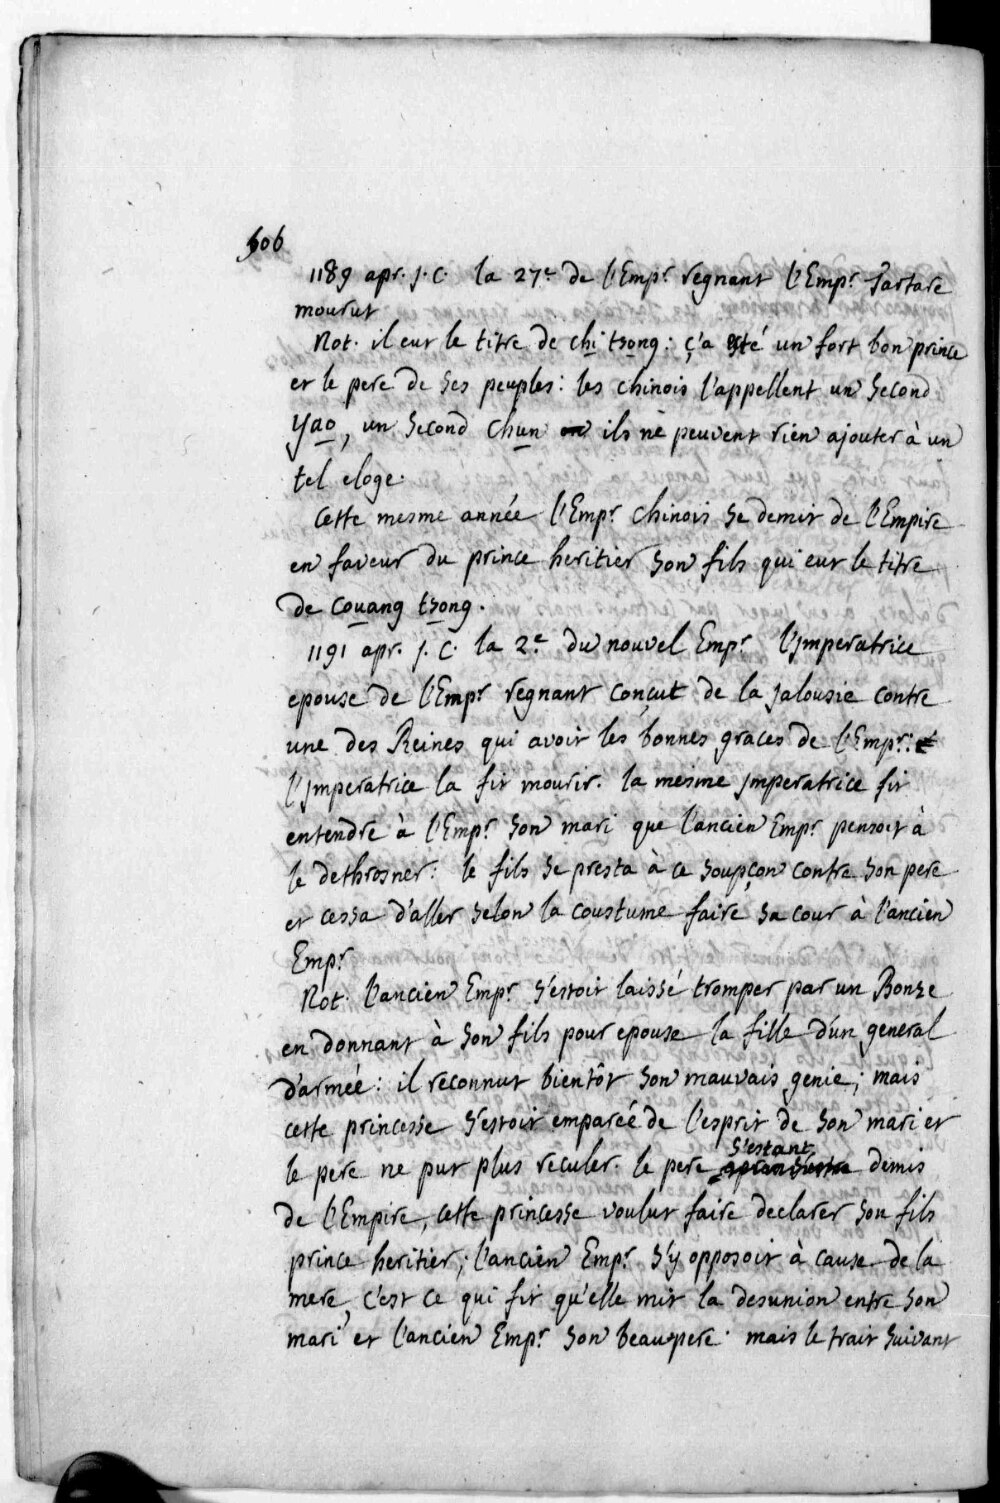 506
1189 apr. J. C. la 27e de l'Empr regnant l'Empr Tartare
mourut
Not. il eut le titre de chi tsong: ç'a esté un fort bon prince
et le pere de ses peuples: les chinois l'appellent un second
yao, un second chun ils ne peuvent rien ajouter à un
tel eloge.
Cette mesme année l'Empr chinois se demit de l'Empire
en faveur du prince heritier son fils qui eut le titre
de couang tsong.
1191 apr. J. C. la 2e du nouvel Empr l'Imperatrice
epouse de l'Empr regnant conçut de la jalousie contre
une des Reines qui avoit les bonnes graces de l'Empr:
l'Imperatrice la fit mourir. la mesme Imperatrice fit
entendre à l'Empr son mari que l'ancien Empr pensoit à
le dethrosner: le fils se presta à ce soupçon contre son pere
et cessa d'aller selon la coustume faire sa cour à l'ancien
Empr
Not. l'ancien Empr s'estoit laissé tromper par un Bonze
en donnant à son fils pour epouse la fille d'un general
d'armée: il reconnut bientôt son mauvais genie; mais
cette princesse s'estoit emparée de l'esprit de son mari et
le pere ne put plus reculer. le pere s'estant demis
de l'Empire, cette princesse voulut faire declarer son fils
prince heritier; l'ancien Empr s'y opposoit à cause de la
mere, c'est ce qui fit qu'elle mit la desunion entre son
mari et l'ancien Empr son beaupere. mais le trait suivant